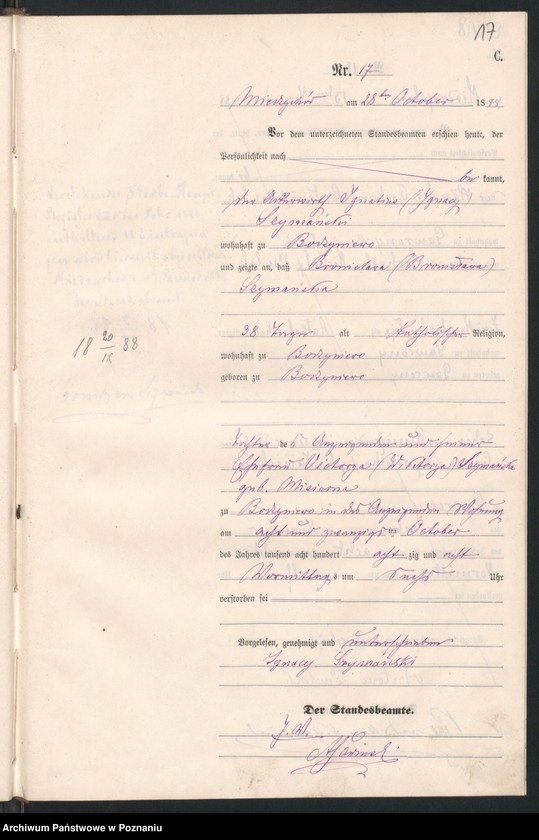 17
C.
Nr. 17
am 28ten October 1888
Vor dem unterzeichneten Standesbeamten erschien heute, der
Persönlichkeit nach
be kannt,
der Ackerwirth Ignatius (Ignacy)
Szymański
wohnhaft zu Bodzyniewo
und zeigte an, daß Bronislava (Bronisława)
Szymańska
38 Tage alt katholischer Religion,
wohnhaft zu Bodzyniewo
geboren zu Bodzyniewo
18 20/IX 88
Tochter des Anzeigenden und seiner
Ehefrau Victorya (Wiktorya) Szymańska
geb. Misiorna
zu Bodzyniewo in des Anzeigenden Wohnung
am acht und zwanzigsten October
des Jahres tausend acht hundert acht zig und acht
Vormittags um Sechs Uhr
verstorben sei
Vorgelesen, genehmigt und unterschrieben
Ignacy Szymański
Der Standesbeamte.
J. V.
Archiwum Państwowe w Poznaniu